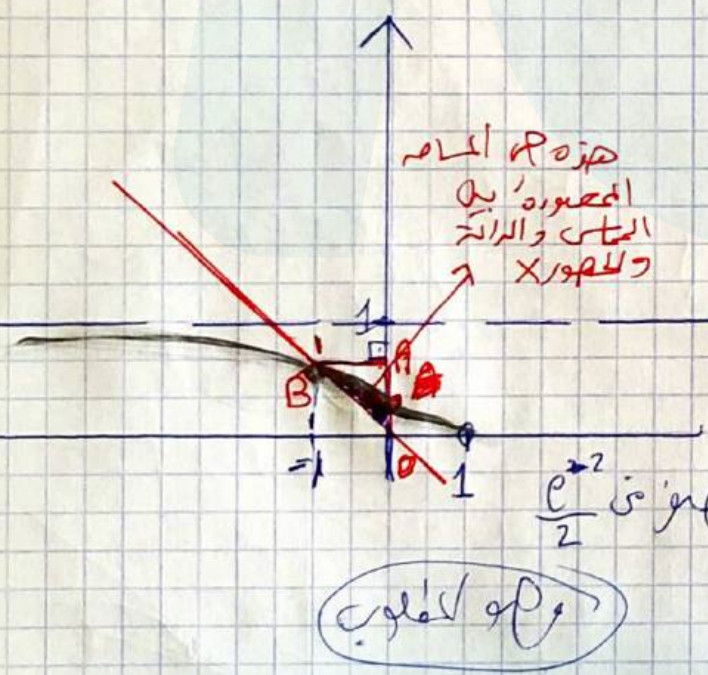 هذه هي المساحة
المحصورة بين
المماس والدالة
والمحور x
1
A
B
-1
0
1
e^-2
2
وهو المطلوب